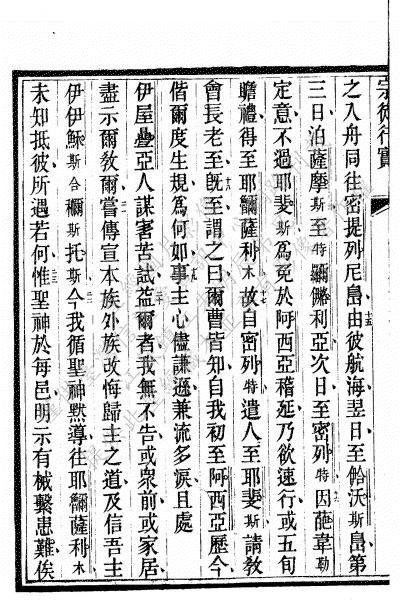 宗徒行實
之入舟同往密提列尼島由彼航海翌日至䑪沃斯島第
三日泊薩摩斯至特䥯僯利亞次日至密列特因葩韋勒
定意不過耶斐斯為免於阿西亞稽延乃欲速行或五旬
瞻禮得至耶𤫩薩利木故自密列特遣人至耶斐斯請教
會長老至旣至謂之曰爾曹皆知自我初至阿西亞歷今
偕爾度生規為何如事主心儘謙遜兼流多淚且處
伊屋疊亞人謀害苦試益爾者我無不告或眾前或家居
盡示爾教爾嘗傳宣本族外族改悔歸主之道及信吾主
伊伊穌斯合
今我循聖神黙導往耶
薩利木
未知抵彼所遇若何惟聖神於每邑明示有械繫患難俟